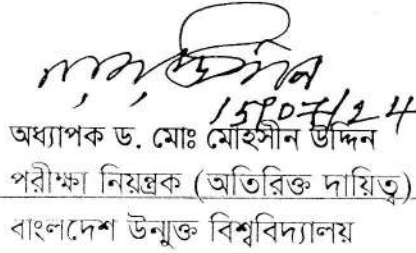 15/07/24
অধ্যাপক ড. মোঃ মোহসীন উদ্দিন
পরীক্ষা নিয়ন্ত্রক (অতিরিক্ত দায়িত্ব)
বাংলাদেশ উন্মুক্ত বিশ্ববিদ্যালয়